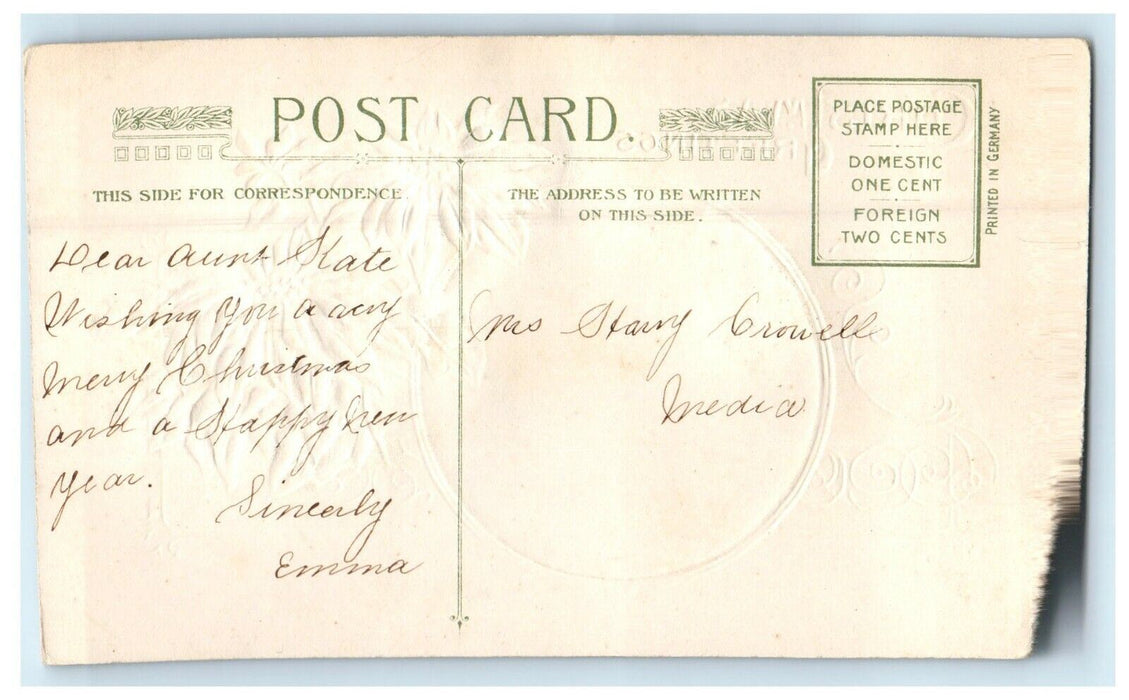 POST CARD.
THIS SIDE FOR CORRESPONDENCE.
THE ADDRESS TO BE WRITTEN
ON THIS SIDE.
PLACE POSTAGE
STAMP HERE
DOMESTIC
ONE CENT
FOREIGN
TWO CENTS
PRINTED IN GERMANY
Dear Aunt Kate
Wishing You a very
Merry Christmas
and a Happy New
Year.
Sincerly
Emma
Mrs Harry Crowell
Media